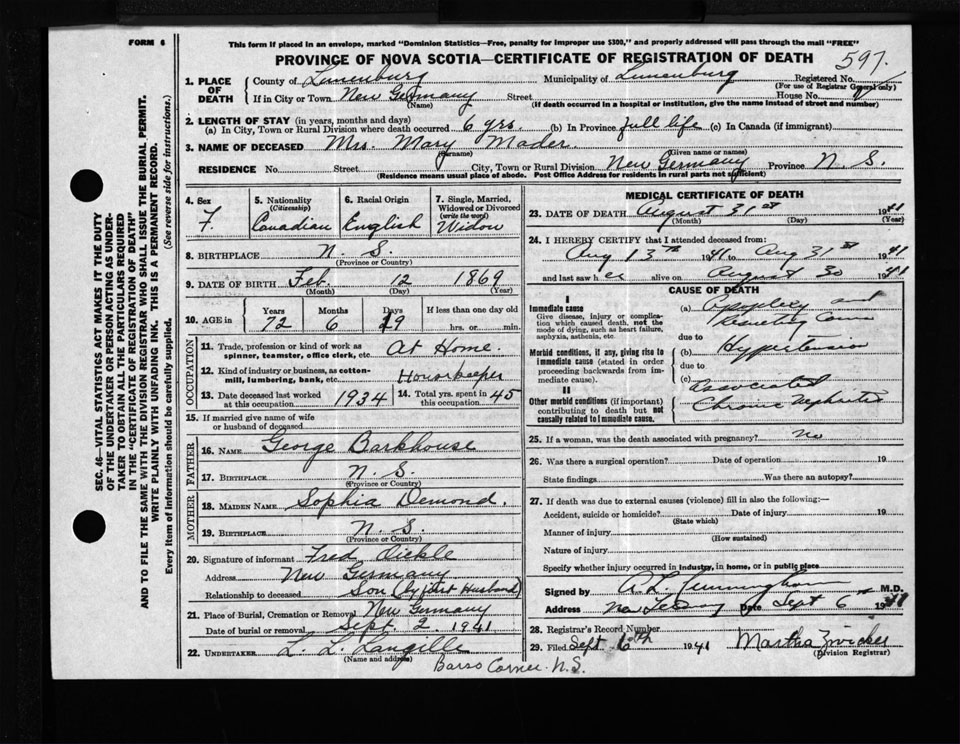 FORM 6
This form if placed in an envelope, marked "Dominion Statistics—Free, penalty for improper use $300," and properly addressed will pass through the mail "FREE"
PROVINCE OF NOVA SCOTIA—CERTIFICATE OF REGISTRATION OF DEATH
597.
1. PLACE OF DEATH County of Lunenburg Municipality of Lunenburg Registered No. (For use of Registrar General only)
If in City or Town New Germany (Name) Street House No.
(If death occurred in a hospital or institution, give the name instead of street and number)
2. LENGTH OF STAY (in years, months and days)
(a) In City, Town or Rural Division where death occurred 6 yrs. (b) In Province full life (c) In Canada (if immigrant)
3. NAME OF DECEASED Mrs. Mary Mader.
(Surname) (Given name or names)
RESIDENCE No. Street City, Town or Rural Division New Germany Province N. S.
(Residence means usual place of abode. Post Office Address for residents in rural parts not sufficient)
4. Sex F.
5. Nationality (Citizenship) Canadian
6. Racial Origin English
7. Single, Married, Widowed or Divorced (write the word) Widow
8. BIRTHPLACE N. S.
(Province or Country)
9. DATE OF BIRTH Feb. 12 1869
(Month) (Day) (Year)
10. AGE in Years Months Days If less than one day old
72 6 19 hrs. or min.
OCCUPATION
11. Trade, profession or kind of work as spinner, teamster, office clerk, etc. At Home.
12. Kind of industry or business, as cotton-mill, lumbering, bank, etc. Housekeeper
13. Date deceased last worked at this occupation 1934 14. Total yrs. spent in this occupation 45
15. If married give name of wife or husband of deceased
FATHER
16. NAME George Barkhouse
17. BIRTHPLACE N. S.
(Province or Country)
MOTHER
18. MAIDEN NAME Sophia Demond.
19. BIRTHPLACE N. S.
(Province or Country)
20. Signature of informant Fred Dickle
Address New Germany
Relationship to deceased Son (by first Husband)
21. Place of Burial, Cremation or Removal New Germany
Date of burial or removal Sept. 2 1941
22. UNDERTAKER L. L. Langille
(Name and address)
Barss Corner. N.S.
MEDICAL CERTIFICATE OF DEATH
23. DATE OF DEATH August 31st 1941
(Month) (Day) (Year)
24. I HEREBY CERTIFY that I attended deceased from:
Aug 13th 1941 to Aug 31st 1941
and last saw her alive on August 30 1941
CAUSE OF DEATH
I
Immediate cause
Give disease, injury or complication which caused death, not the mode of dying, such as heart failure, asphyxia, asthenia, etc.
(a) Apoplexy and
due to
Morbid conditions, if any, giving rise to immediate cause (stated in order proceeding backwards from immediate cause).
(b) Hypertension
due to
(c) Associated
II
Other morbid conditions (if important) contributing to death but not causally related to immediate cause.
Chronic Nephritis
25. If a woman, was the death associated with pregnancy? no
26. Was there a surgical operation? Date of operation 19
State findings Was there an autopsy?
27. If death was due to external causes (violence) fill in also the following:—
Accident, suicide or homicide? Date of injury 19
(State which)
Manner of injury
(How sustained)
Nature of injury
Specify whether injury occurred in industry, in home, or in public place
Signed by Cunningham M.D.
Address New Germany Date Sept 6th 1941
28. Registrar's Record Number
29. Filed Sept 6th 1941 Martha Zwicker
(Division Registrar)
SEC. 46—VITAL STATISTICS ACT MAKES IT THE DUTY
OF THE UNDERTAKER OR PERSON ACTING AS UNDER-
TAKER TO OBTAIN ALL THE PARTICULARS REQUIRED
IN THE "CERTIFICATE OF REGISTRATION OF DEATH"
AND TO FILE THE SAME WITH THE DIVISION REGISTRAR WHO SHALL ISSUE THE BURIAL PERMIT.
WRITE PLAINLY WITH UNFADING INK. THIS IS A PERMANENT RECORD.
Every item of information should be carefully supplied. (See reverse side for instructions.)